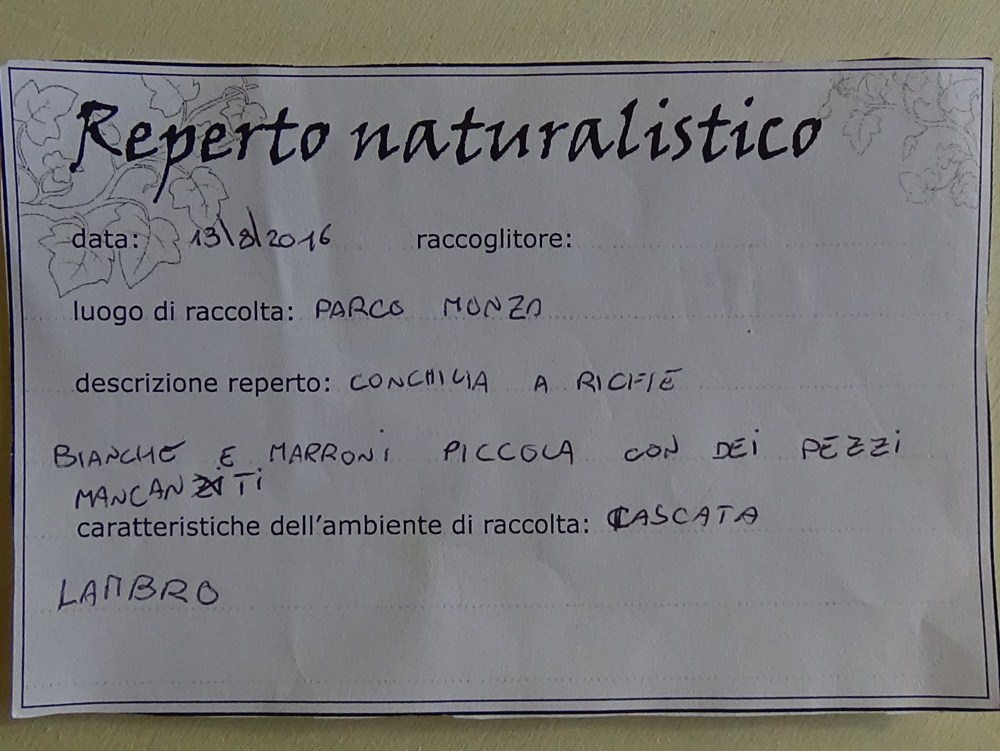 Reperto naturalistico
data: 13\8\2016 raccoglitore:
luogo di raccolta: PARCO MONZA
descrizione reperto: CONCHILIA A RICHE
BIANCHE E MARRONI PICCOLA CON DEI PEZZI
MANCANTI
caratteristiche dell'ambiente di raccolta: CASCATA
LAMBRO